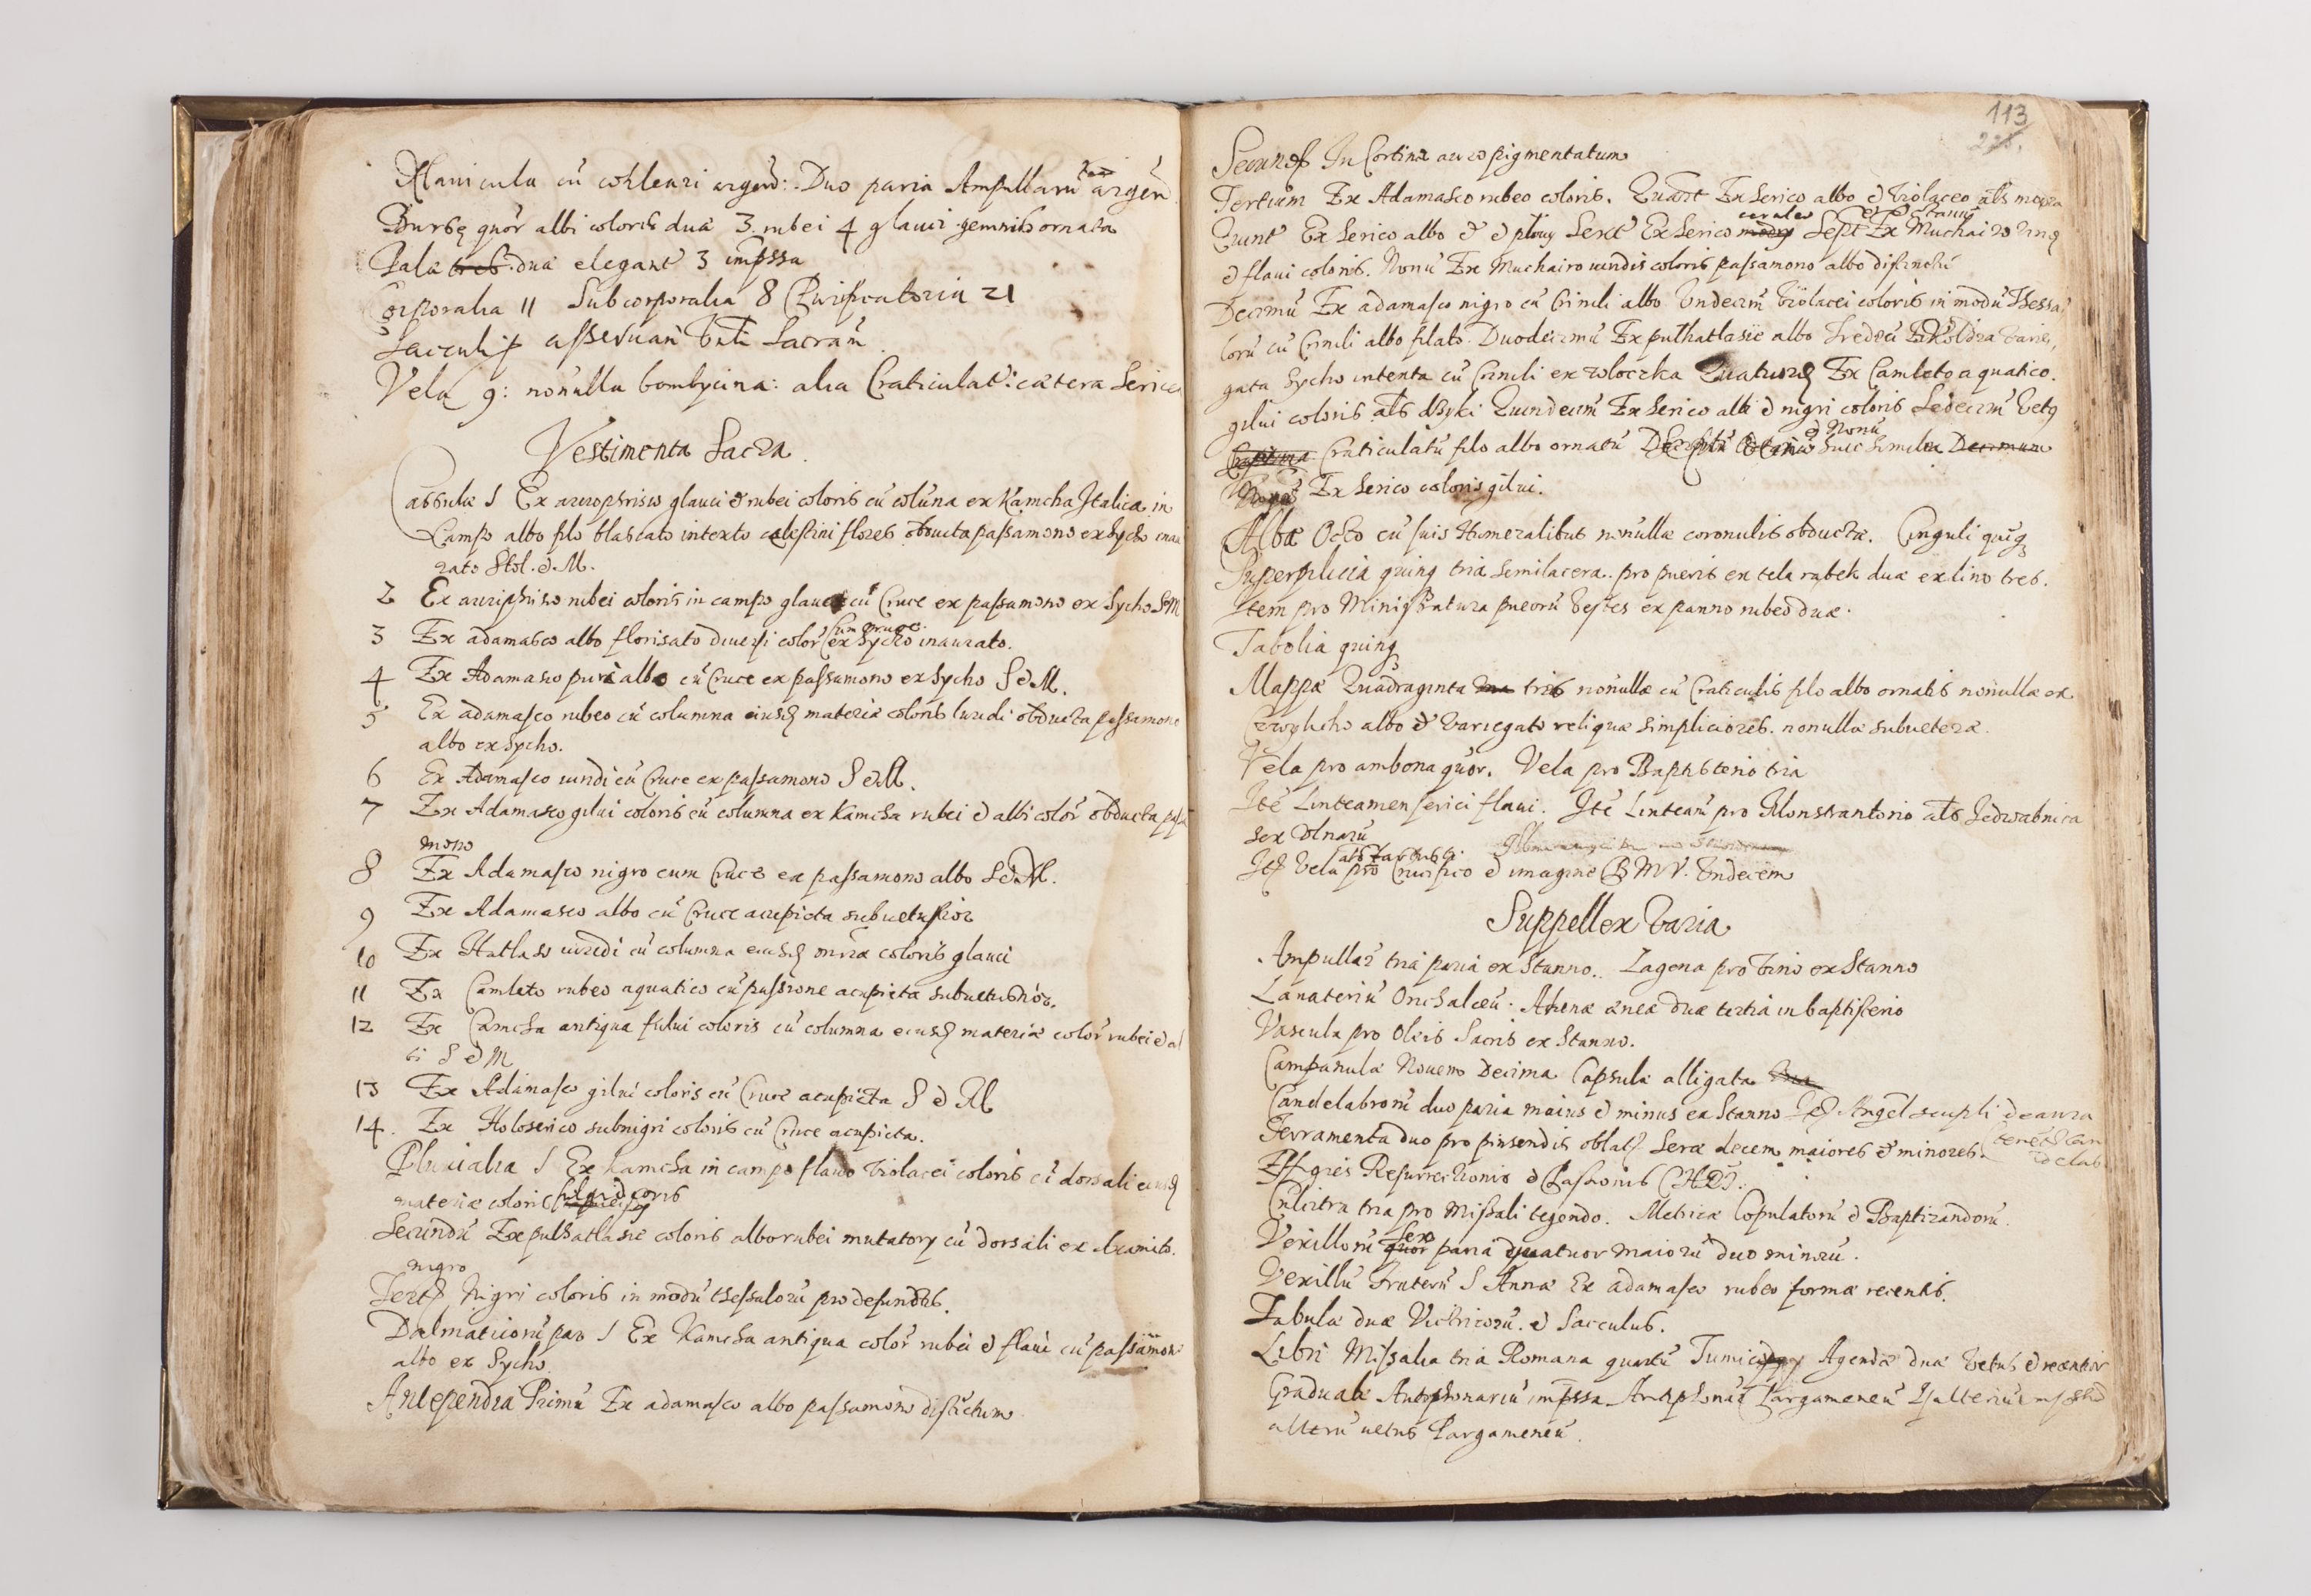 Navicula cũ cohleari argend: Duo paria Ampullarũ argen
Bursę quor albi coloris duæ 3 rubei 4 glauci gemnis ornata
Palæ tres duæ elegant 3 impssa
Corporalia 11 Subcorporalia 8 Purificatoria 21
asservan Sacram
Vela 9: nonulla bombycina: alia Craticulat: cætera Serice
Vestimenta Sacra.
Cassulæ 1 Ex auriphrisio glauci & rubei coloris cũ colũna ex Kamcha Italica in
Campo albo filo blascato intexto cælestini flores obducta passamono ex Sycho inau
rato Stol. & M.
2 Ex auriphriso rubei coloris in campo glauco cũ Cruce ex passamono ex Sycho S M
3 Ex adamasco albo florisato diversi color cum cruce ex Sycho inaurato.
4 Ex Adamasco puri albo cũ Cruce ex passamono ex Sycho S & M.
5 Ex adamasco rubeo cũ columna eiusq materiæ coloris luridi obducta passamono
albo ex Sycho.
6 Ex Adamasco viridi cũ Cruce ex passamono S & M.
7 Ex Adamasco gilui coloris cũ columna ex Kamcha rubei & albi color obducta passa
mono
8 Ex Adamasco nigro cum Cruce ex passamono albo S & M.
9 Ex Adamasco albo cũ Cruce acupicta subvetustior
10 Ex Hatlaso viridi cũ columna eiusq mræ coloris glauci
11 Ex Camleto rubeo aquatico cũ passione acupicta subvetustior.
12 Ex Camcha antiqua fului coloris cũ columna eiusq materiæ color rubei & al
bi S & M
13 Ex Adamasco gilui coloris cũ Cruce acupicta S & M
14. Ex Holoserico subnigri coloris cũ Cruce acupicta.
Pluuialia 1 Ex Kamcha in campo flauo violacei coloris cũ dorsali eiusq
materiæ coloris
Secundũ Ex pulhatlasie coloris albo rubei mutatory cũ dorsali ex Axamito
nigro
Tert Nigri coloris in modũ thessalorũ pro defunctis.
Dalmaticorũ par 1 Ex Kamcha antiqua color rubei & flaui cũ passamono
albo ex Sycho
Antependia Primũ Ex adamasco albo passamono distictum
113
Secund In Cortina auropigmentatum
Tertium Ex Adamasco rubeo coloris. Quart Ex Serico albo & violaceo als
Quint Ex Serico albo & Sext Ex Serico ceruleo Sept Ex Muchairo
& flaui coloris. Nonũ Ex Muchairo viridis coloris passamono albo distinctũ
Decimũ Ex adamasco nigro cũ Crinili albo Undecim violacei coloris in modũ Thessa
lorũ cũ Crinili albo filato. Duodecimũ Ex pulhatlasie albo Tredeci Ex Koldra varie,
gata Sycho intenta cũ Crinili ex wloczka Quatuord Ex Camleto aquatico.
gilui coloris als Quindecim Ex Serico albi & nigri coloris Sedecim
Craticulatũ filo albo ornatũ huic Similia Decimum
Ex Serico coloris gilui.
Albæ Octo cũ suis Humeralibus nonullæ coronulis obductæ. Cinguli quinq
Superplicia quinq tria semilacera. pro pueris ex tela rąbek duæ ex lino tres.
Item pro Ministratura puerorũ vestes ex panno rubeo duæ.
Tobolia quinq
Mappæ Quadraginta tres nonullæ cũ Craticulis filo albo ornatis nonullæ ex
Cwylicho albo & variegato reliquæ simpliciores. nonullæ subueteræ.
Vela pro ambona quor. Vela pro Baptisterio tria
Ite Linteamen serici flaui. Ite Linteam pro Monstrantorio als Jedwabnica
sex Vlnarũ
Ite Vela pro Crucifixo & imagine B M V. Vndecem
Suppellex Varia
Ampullar tria paria ex Stanno.. Lagena pro Vino ex Stanno
Lauaterium Orichalceũ. Ahenæ æneæ duæ tertia in baptisterio
Vascula pro Oleis Sacris ex Stanno.
Campanulæ Nouem Decima Capsulæ alligata
Candelabrorũ duo paria maius & minus ex Stanno It Angel sculpti deaura
Ferramenta duo pro pinsendis oblat. Seræ decem maiores & minores. tenet Can
delab
Effigies Resurrectionis & Passionis CHRI.
Culcitra tria pro Missali tegendo. Metricæ Copulatorũ & Baptizandorũ.
Vexillorũ sex paria quatuor maiorũ duo minorũ.
Vexillũ Fraterũ S Annæ Ex adamasco rubeo formæ recentis.
Tabulæ duæ Victricorũ. & Sacculus.
Libri Missalia tria Romana quartũ Agendæ duæ vetus & recentior
Graduale Antiphonariũ impssa Antiphonar Pargameneũ Psalteriũ impssũ
alterũ uetus Pargameneũ.